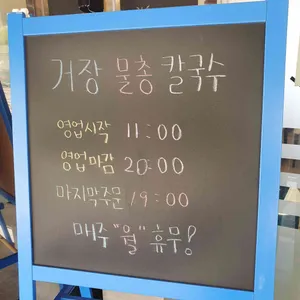 거장 물총 칼국수
영업시작 11:00
영업마감 20:00
마지막주문 19:00
매주 "월" 휴무!